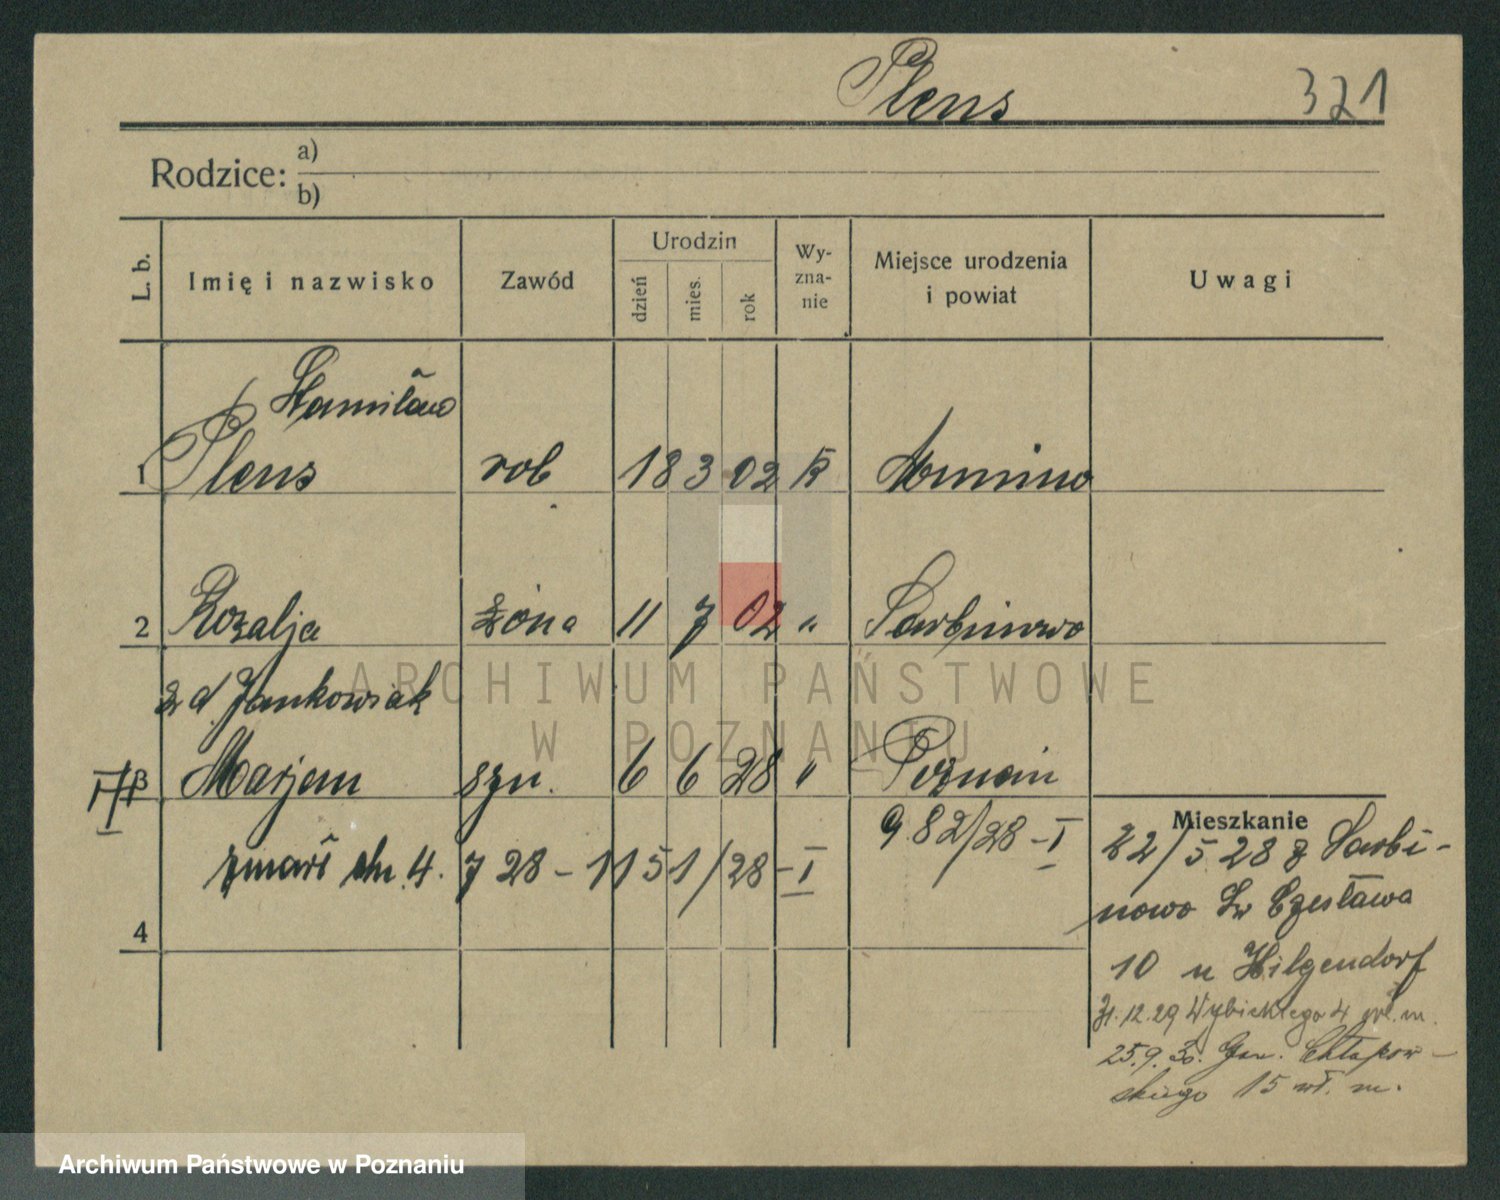 Plens 321
Rodzice: a)
b)
L. b.
Imię i nazwisko
Zawód
Urodzin
dzień
mies.
rok
Wy-
zna-
nie
Miejsce urodzenia
i powiat
Uwagi
Stanisław
1 Plens rob 18 3 02 K
2 Rozalja żona 11 7 02 " Sarbinowo
z d. Jankowiak
3 Marjan syn. 6 6 28 " Poznań
982/28-I
zmarł dn. 4. 7 28 - 1151/28 - I
4
Mieszkanie
22/5 28 z Sarbi-
nowo Św Czesława
10 u Hilgendorf
31.12.29 Wybickiego 4 wł. m.
25.9.30. Gen. Chłapow-
skiego 15 wł. m.
ARCHIWUM PAŃSTWOWE
W POZNANIU
Archiwum Państwowe w Poznaniu